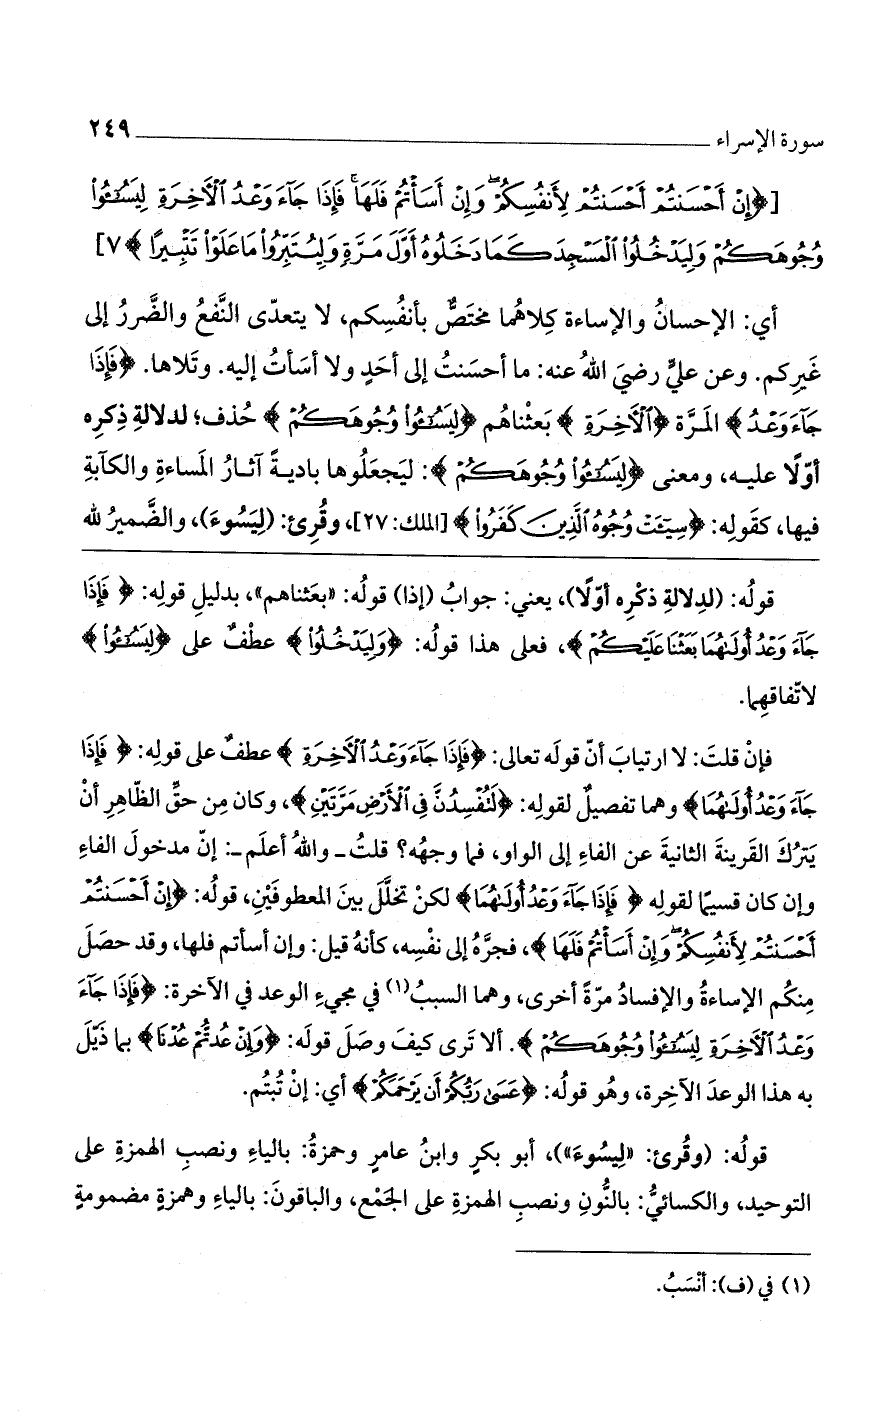 سورة الإسراء ٢٤٩
[﴿إِنْ أَحْسَنتُمْ أَحْسَنتُمْ لِأَنفُسِكُمْ ۖ وَإِنْ أَسَأْتُمْ فَلَهَا ۚ فَإِذَا جَآءَ وَعْدُ ٱلْأَخِرَةِ لِيَسُـۥٓـُٔوا۟
وُجُوهَكُمْ وَلِيَدْخُلُوا۟ ٱلْمَسْجِدَ كَمَا دَخَلُوهُ أَوَّلَ مَرَّةٍ وَلِيُتَبِّرُوا۟ مَا عَلَوْا۟ تَتْبِيرًا ﴾٧]
أي: الإحسانُ والإساءة كِلاهُما مختصٌّ بأنفُسِكم، لا يتعدّى النَّفعُ والضَّررُ إلى
غَيرِكم. وعن عليٍّ رضيَ اللهُ عنه: ما أحسَنتُ إلى أحَدٍ ولا أسَأتُ إليه. وتَلاها. ﴿فَإِذَا
جَآءَ وَعْدُ﴾ المَرَّة ﴿ٱلْأَخِرَةِ﴾ بَعثْناهُم ﴿لِيَسُـۥٓـُٔوا۟ وُجُوهَكُمْ﴾ حُذف؛ لدلالةِ ذِكرِه
أوّلًا عليه، ومعنى ﴿لِيَسُـۥٓـُٔوا۟ وُجُوهَكُمْ﴾: ليَجعَلُوها باديةً آثارُ المَساءةِ والكآبةِ
فيها، كقَولِه: ﴿سِيٓـَٔتْ وُجُوهُ ٱلَّذِينَ كَفَرُوا۟﴾ [الملك: ٢٧]، وقُرِئ: (لِيَسُوءَ)، والضَّميرُ لله
قولُه: (لدِلالةِ ذكْرِه أوّلًا)، يعني: جوابُ (إذا) قولُه: «بعَثناهم»، بدليلِ قولِه: ﴿فَإِذَا
جَآءَ وَعْدُ أُولَىٰهُمَا بَعَثْنَا عَلَيْكُمْ﴾، فعلى هذا قولُه: ﴿وَلِيَدْخُلُوا۟﴾ عطْفٌ على ﴿لِيَسُـۥٓـُٔوا۟﴾
لاتّفاقهِما.
فإنْ قلتَ: لا ارتيابَ أنّ قولَه تعالى: ﴿فَإِذَا جَآءَ وَعْدُ ٱلْأَخِرَةِ﴾ عطفٌ على قولِه: ﴿فَإِذَا
جَآءَ وَعْدُ أُولَىٰهُمَا﴾ وهما تفصيلٌ لقولِه: ﴿لَتُفْسِدُنَّ فِى ٱلْأَرْضِ مَرَّتَيْنِ﴾، وكان مِن حقِّ الظّاهِرِ أنْ
يَترُكَ القَرينةَ الثانيةَ عن الفاءِ إلى الواو، فما وجهُه؟ قلتُ ـ واللهُ أعلَم ـ: إنّ مدخولَ الفاءِ
وإن كان قسيمًا لقولِه ﴿فَإِذَا جَآءَ وَعْدُ أُولَىٰهُمَا﴾ لكنْ تخلَّلَ بينَ المعطوفَيْنِ، قولُه: ﴿إِنْ أَحْسَنتُمْ
أَحْسَنتُمْ لِأَنفُسِكُمْ ۖ وَإِنْ أَسَأْتُمْ فَلَهَا﴾، فجرَّهُ إلى نفْسِه، كأنهُ قيل: وإن أسأتم فلها، وقد حصَلَ
مِنكُم الإساءةُ والإفسادُ مرّةً أخرى، وهما السببُ(١) في مجيءِ الوعد في الآخرة: ﴿فَإِذَا جَآءَ
وَعْدُ ٱلْأَخِرَةِ لِيَسُـۥٓـُٔوا۟ وُجُوهَكُمْ﴾. ألا تَرى كيفَ وصَلَ قولَه: ﴿وَإِنْ عُدتُّمْ عُدْنَا﴾ بما ذَيّلَ
به هذا الوعدَ الآخِرة، وهُو قولُه: ﴿عَسَىٰ رَبُّكُمْ أَن يَرْحَمَكُمْ﴾ أي: إنْ تُبتُم.
قولُه: (وقُرئ: «لِيسُوءَ»)، أبو بكرٍ وابنُ عامرٍ وحمزةُ: بالياءِ ونصبِ الهمزةِ على
التوحيد، والكسائيُّ: بالنُّونِ ونصبِ الهمزةِ على الجَمْع، والباقونَ: بالياءِ وهمزةٍ مضمومةٍ
(١) في (ف): أنْسَبُ.